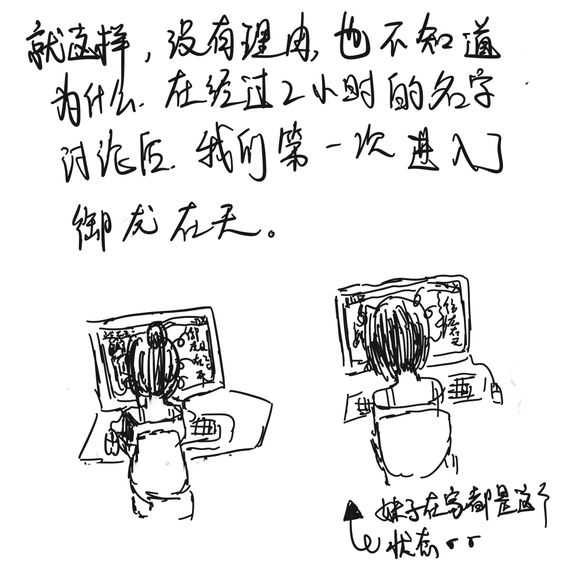 就这样，没有理由，也不知道
为什么.在经过2小时的名字
讨论后.我们第一次进入了
御龙在天。
御龙在天
御龙在天
妹子在家都是这个
状态